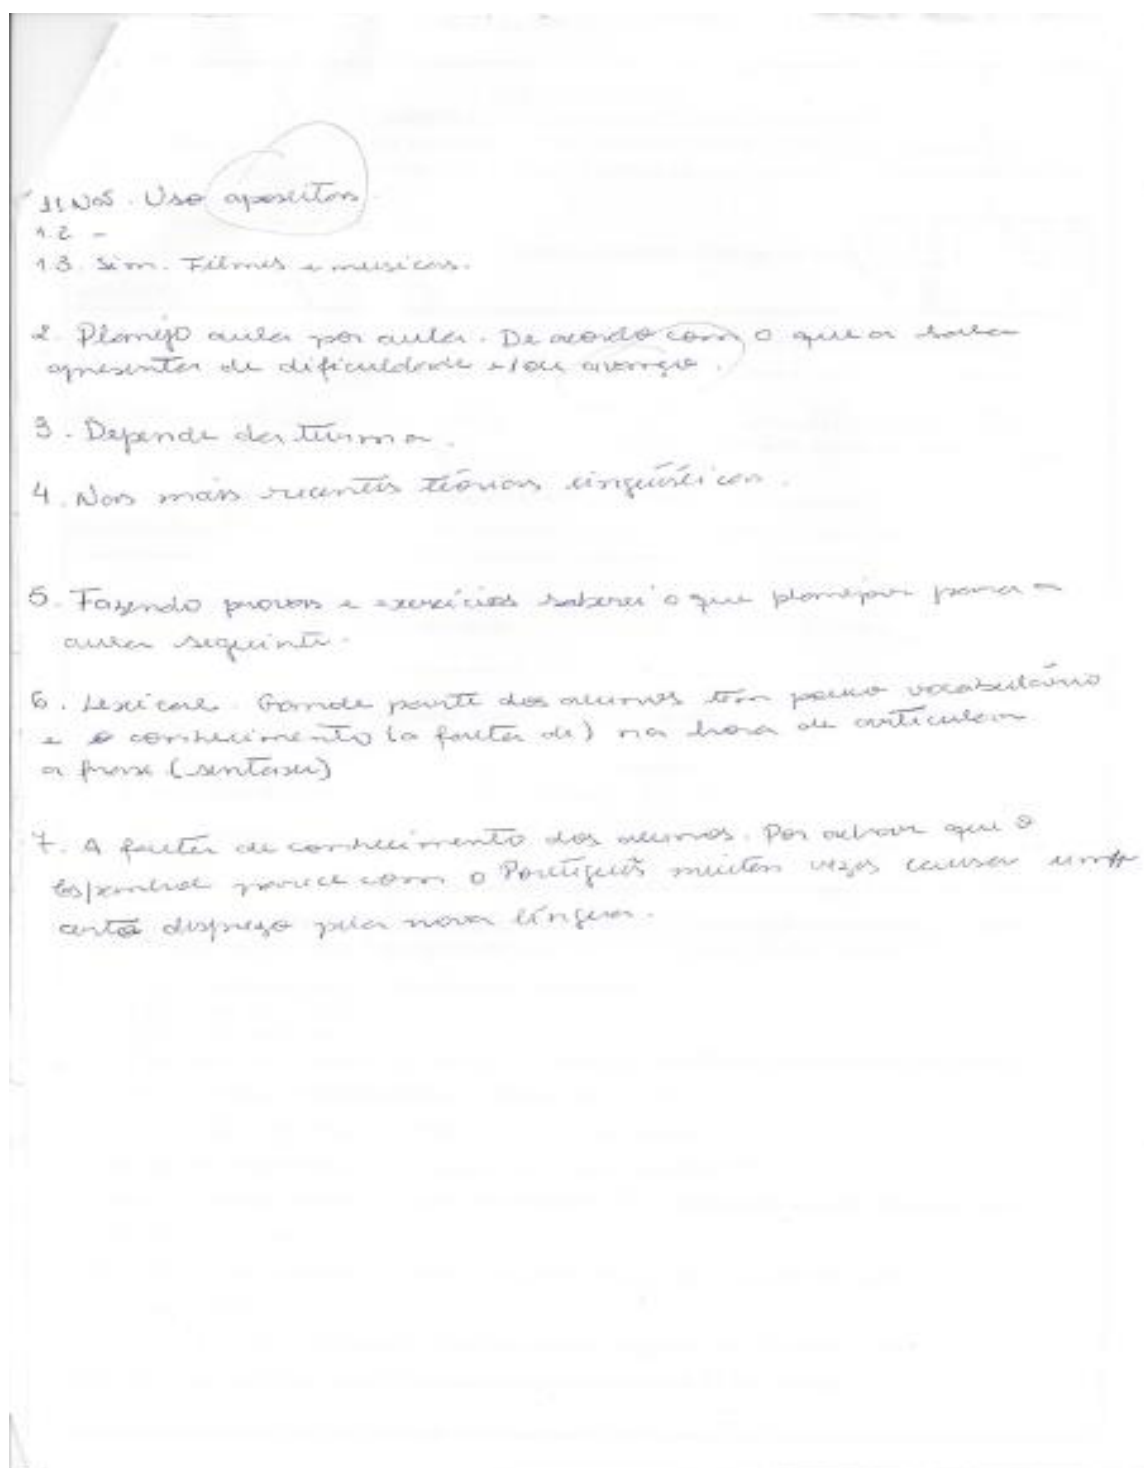 1.1 Não. Uso apostilas
1.2 -
1.3. Sim. Filmes e músicas.
2. Planejo aula por aula. De acordo com o que a sala
apresenta de dificuldade e/ou avanço.
3. Depende da turma.
4. Nas mais recentes teorias lingüísticas.
5. Fazendo provas e exercícios saberei o que planejar para a
aula seguinte.
6. Lexical. Grande parte dos alunos têm pouco vocabulário
e o conhecimento (a falta de) na hora de articular
a frase (sintaxe)
7. A falta de conhecimento dos alunos. Por achar que o
Espanhol parece com o Português muitas vezes causa um
certo desprezo pela nova língua.